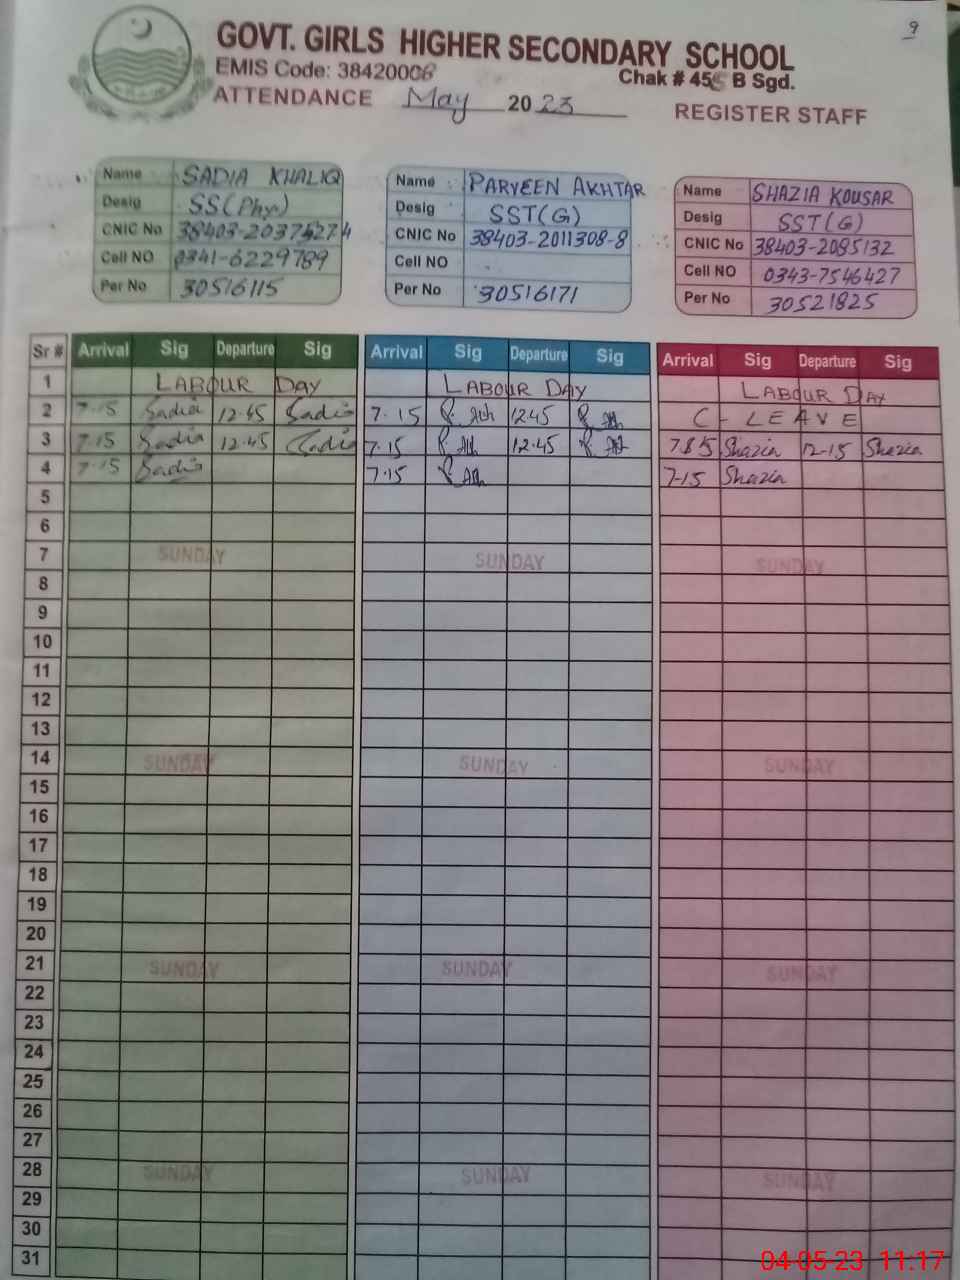 9
GOVT. GIRLS HIGHER SECONDARY SCHOOL
EMIS Code: 38420006 Chak # 45 B Sgd.
ATTENDANCE May 2023 REGISTER STAFF
Name SADIA KHALIQ
Desig SS(Phy)
CNIC No
Cell NO 0341-6229789
Per No 30516115
Name PARVEEN AKHTAR
Desig SST(G)
CNIC No 38403-2011308-8
Cell NO
Per No 30516171
Name SHAZIA KOUSAR
Desig SST(G)
CNIC No 38403-2085132
Cell NO 0343-7546427
Per No 30521825
Sr # Arrival Sig Departure Sig Arrival Sig Departure Sig Arrival Sig Departure Sig
1 LABOUR DAY LABOUR DAY LABOUR DAY
2 7-15 Sadia 12.45 Sadia 7.15 12.45 C- LEAVE
3 7.15 Sadia 12.45 Sadia 7.15 12.45 Shazia 12-15 Shazia
4 7-15 Sadia 7.15 7-15 Shazia
5
6
7 SUNDAY SUNDAY SUNDAY
8
9
10
11
12
13
14 SUNDAY SUNDAY SUNDAY
15
16
17
18
19
20
21 SUNDAY SUNDAY SUNDAY
22
23
24
25
26
27
28 SUNDAY SUNDAY SUNDAY
29
30
31
04-05-23 11:17